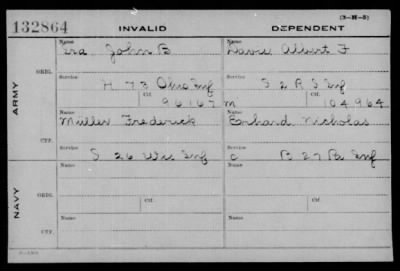 132864 INVALID DEPENDENT (3-H-5)
Name Name
Ira John B Davie Albert F
ORIG.
Service Service
H 73 Ohio Inf S 2 R S Inf
Ctf. Ctf.
96167 m 104964
ARMY
Name Name
Muller Frederick Erhard Nicholas
CTF.
Service Service
S 26 Wis Inf c B 27 Pa Inf
Name Name
ORIG.
Service Service
Ctf. Ctf.
NAVY
Name Name
CTF.
Service Service